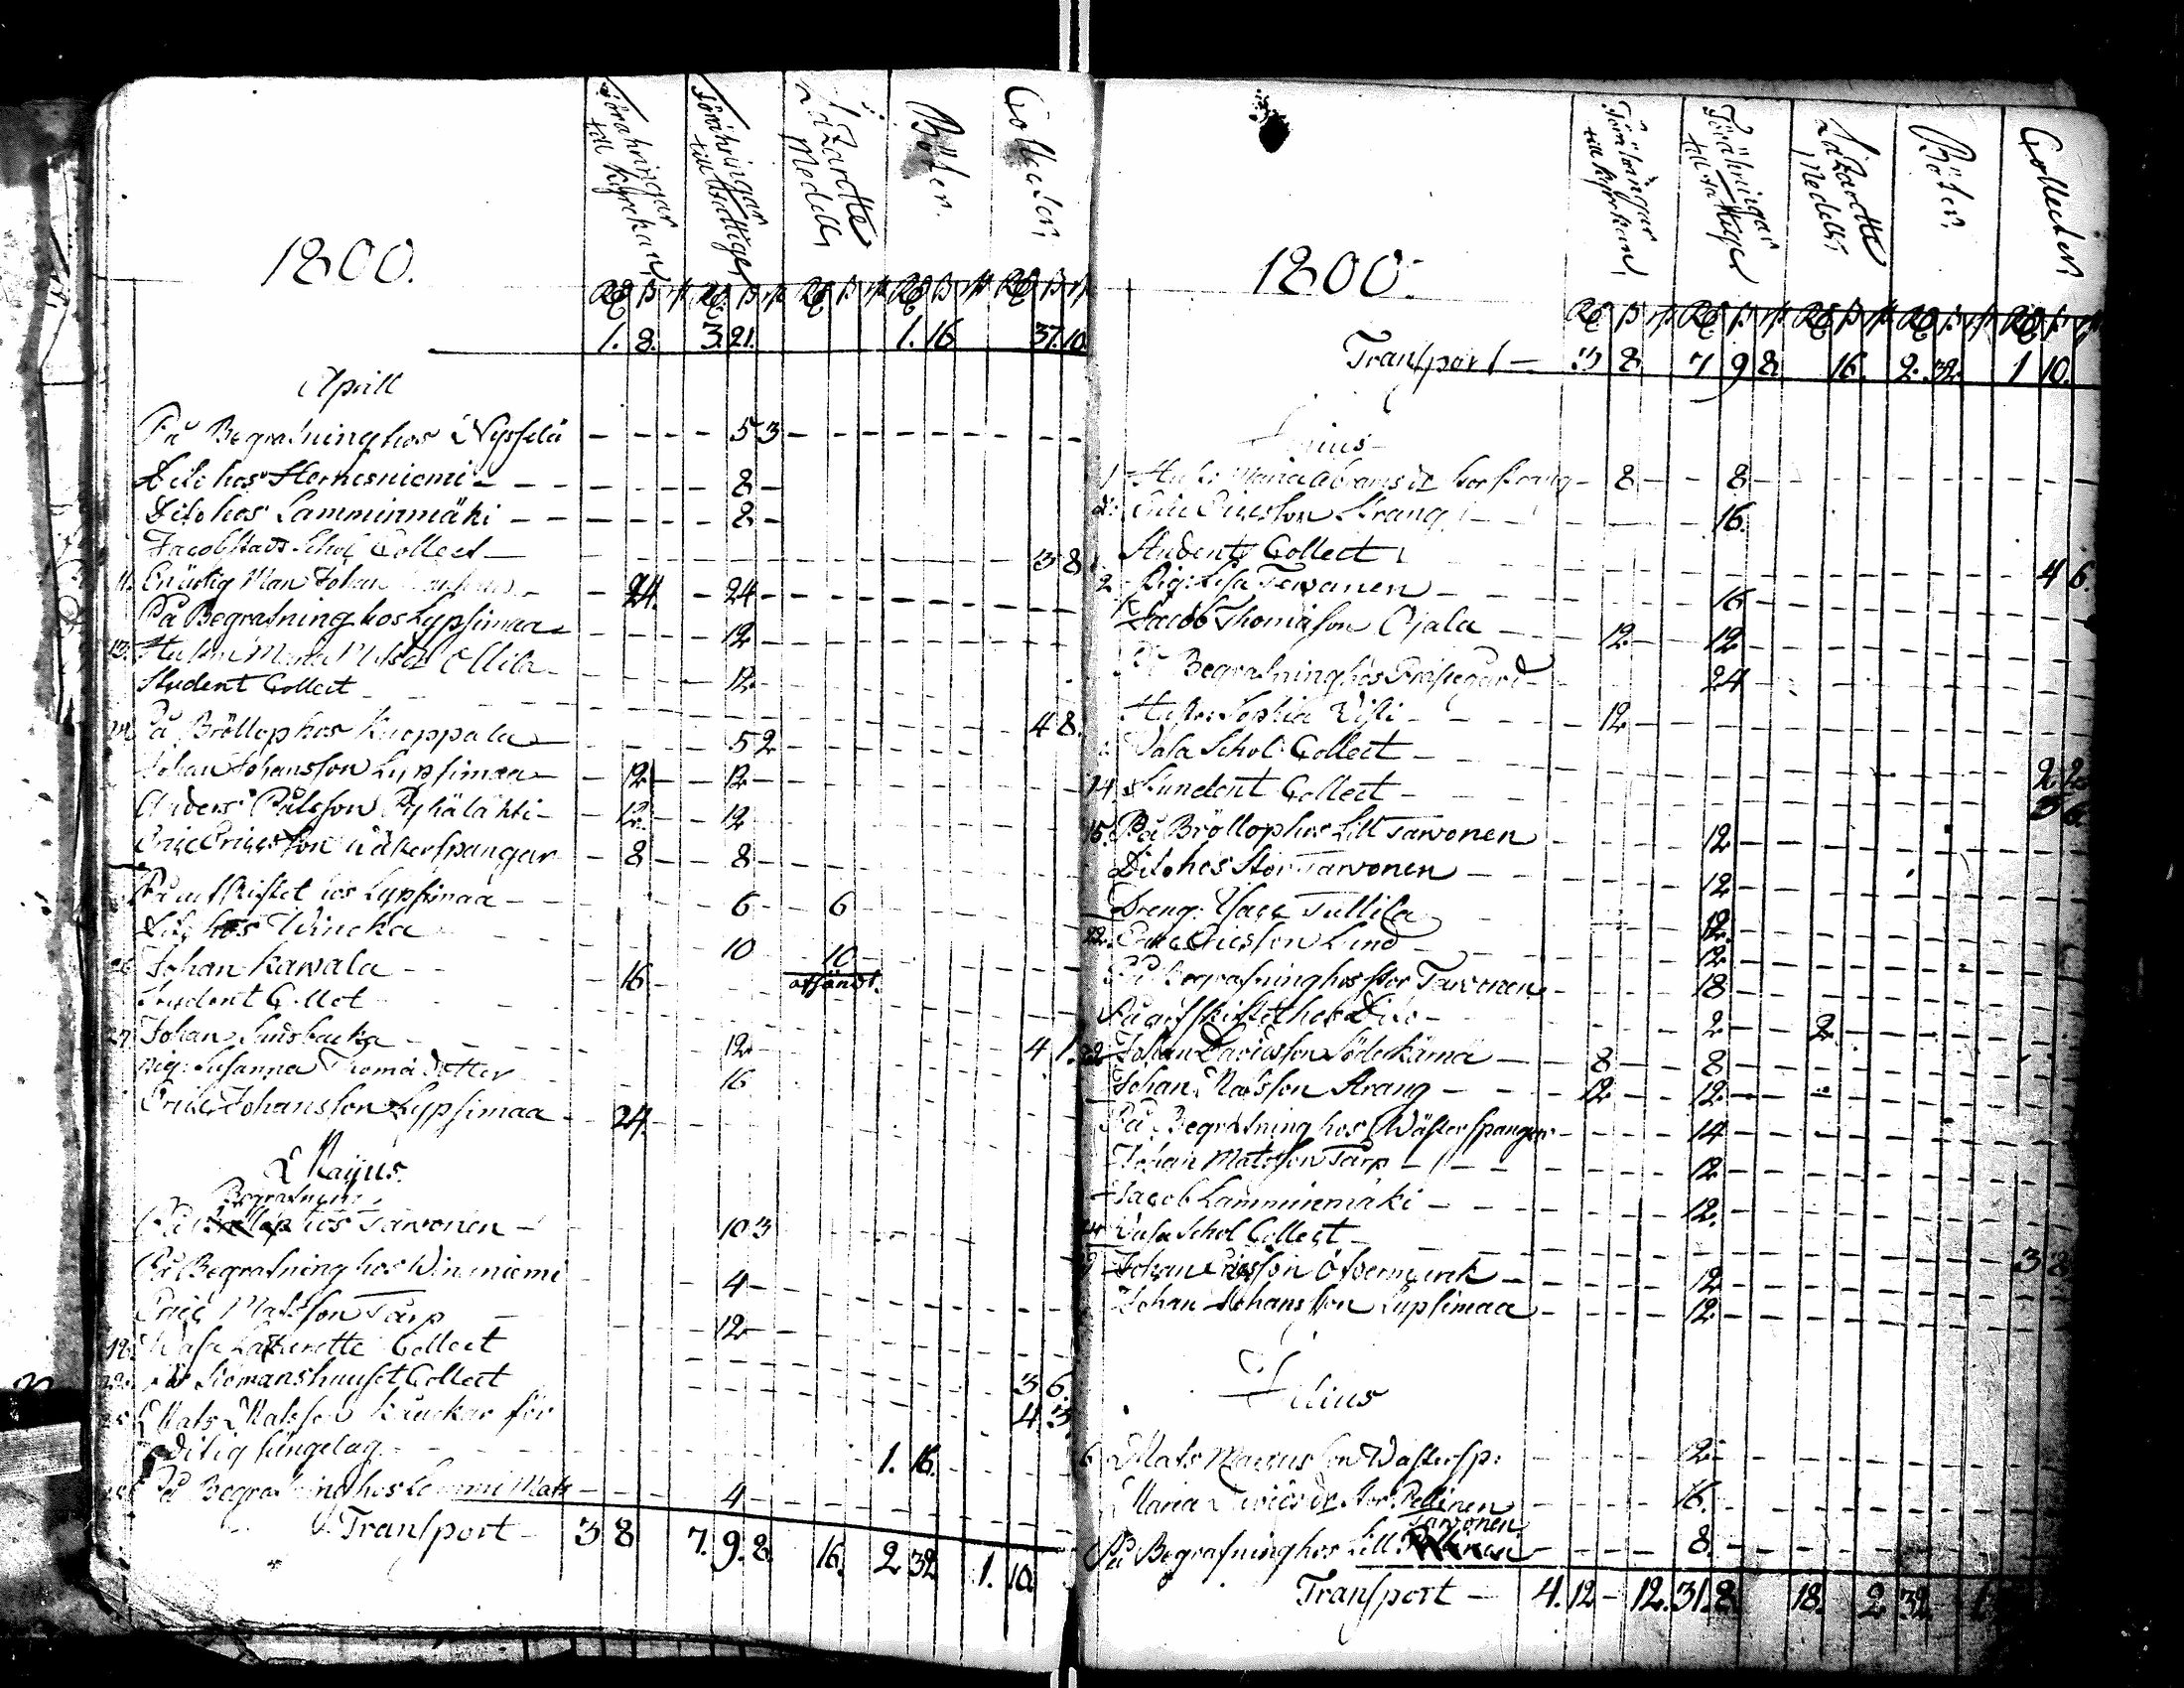 Förähringar till Kyrckan
Förähringar till Fattige
Lazaretts Medell
Böter.
Collecter
1800.
Rd ß rst Rd ß rst Rd ß rst Rd ß rst Rd ß rst
1. 8. 3. 21. 1. 16 37. 10.
Aprill
På Begrafning hos - - - - 5 3 - - -
Dito hos Hernesniemi - - - 8 -
Dito hos Lamminmäki - - - 8 -
Jacobstads Schol Collect - 3 8
11. Man Johan - 24. - 24 -
På Begrafning hos Lypsimaa - 12 -
13. Maria Ollila - 12 -
Student Collect - 4 8.
På Bröllop hos Knoppala - 5 2 -
Johan Johansson Lypsimaa - 12 - - 12 -
Anders Pålsson Pyhälahti - 12. - - 12
Eric Ericsson Wästerspangar - 8 - - 8 -
På arfskiftet hos Lypsimaa - - 6 - 6
Dito hos Wincka 10 10
afsändt.
26 Johan Karvala - - 16 -
Student Collet - 4 1.
27. Johan Sundbacka - 12 -
Pig: Susanna Thomädotter 16
Eric Johansson Lypsimaa - 24 -
Majus.
Begrafning
På Bröllop hos Tarvonen - 10 3
På Begrafning hos Wininiemi - 4 -
Eric Matsson Tarp - 12 -
18. Wasa Lazarette Collect 3 6.
22. Siömanshuuset Collect 4. 3.
25. Mats Matsson Kauckas för
sängelag - 1. 16.
På Begrafning hos Lammi Mats - 4 -
Transport - 3 8 7. 9. 8. 16. 2 32. 1. 10.
Förähringar till Kyrckan
Förähringar till Fattige
Lazarette Medell
Böter
Collecter
1800.
Rd ß rst Rd ß rst Rd ß rst Rd ß rst Rd ß rst
Transport - 3 8. 7 9 8. 16. 2. 32. 1 10.
Junius
1 Hust: Maria Abramsdr Storstrang - 8 - - 8 -
Eric Ericsson Strang - 16.
Student Collect 4 6.
2. Pig: Lisa Tervanen - 16 -
Jacob Thomasson Ojala - 12. - 12 -
På Begrafning hos Prästgård - 24
Hustr: Sophia - 12 -
Vasa Schol Collect - 2 2
14. Student Collect - 3 6.
15. På Bröllop hos Lill Tarvonen - 12 -
Dito hos Stor Tarvonen - 12 -
Dreng: Isac Tullila 12.
22. Eric Ericsson Lund - 12
På Begrafning hos stor Tarvonen - 18 -
På arfskiftet hos Dito - 2 - 2. -
22 Johan Davidsson Söderkäma - 8 - - 8 -
Johan Matsson Strang - 12 - - 12. -
På Begrafning hos Wästerspangar - 14 -
Johan Matsson Tarp - 12 -
Jacob Lamminemäki - 12.
Vasa Schol Collect - 3 8
Johan Ericsson Öfvermarck - 12 -
Johan Johansson Lypsimaa - 12 -
Julius
6 Mats Wästersp: - 12. -
Maria stor Pellinen - 16. -
Tarvonen
På Begrafning hos Lill Pellinen - 8. -
Transport - 4. 12 - 12. 31. 8 18. 2 32